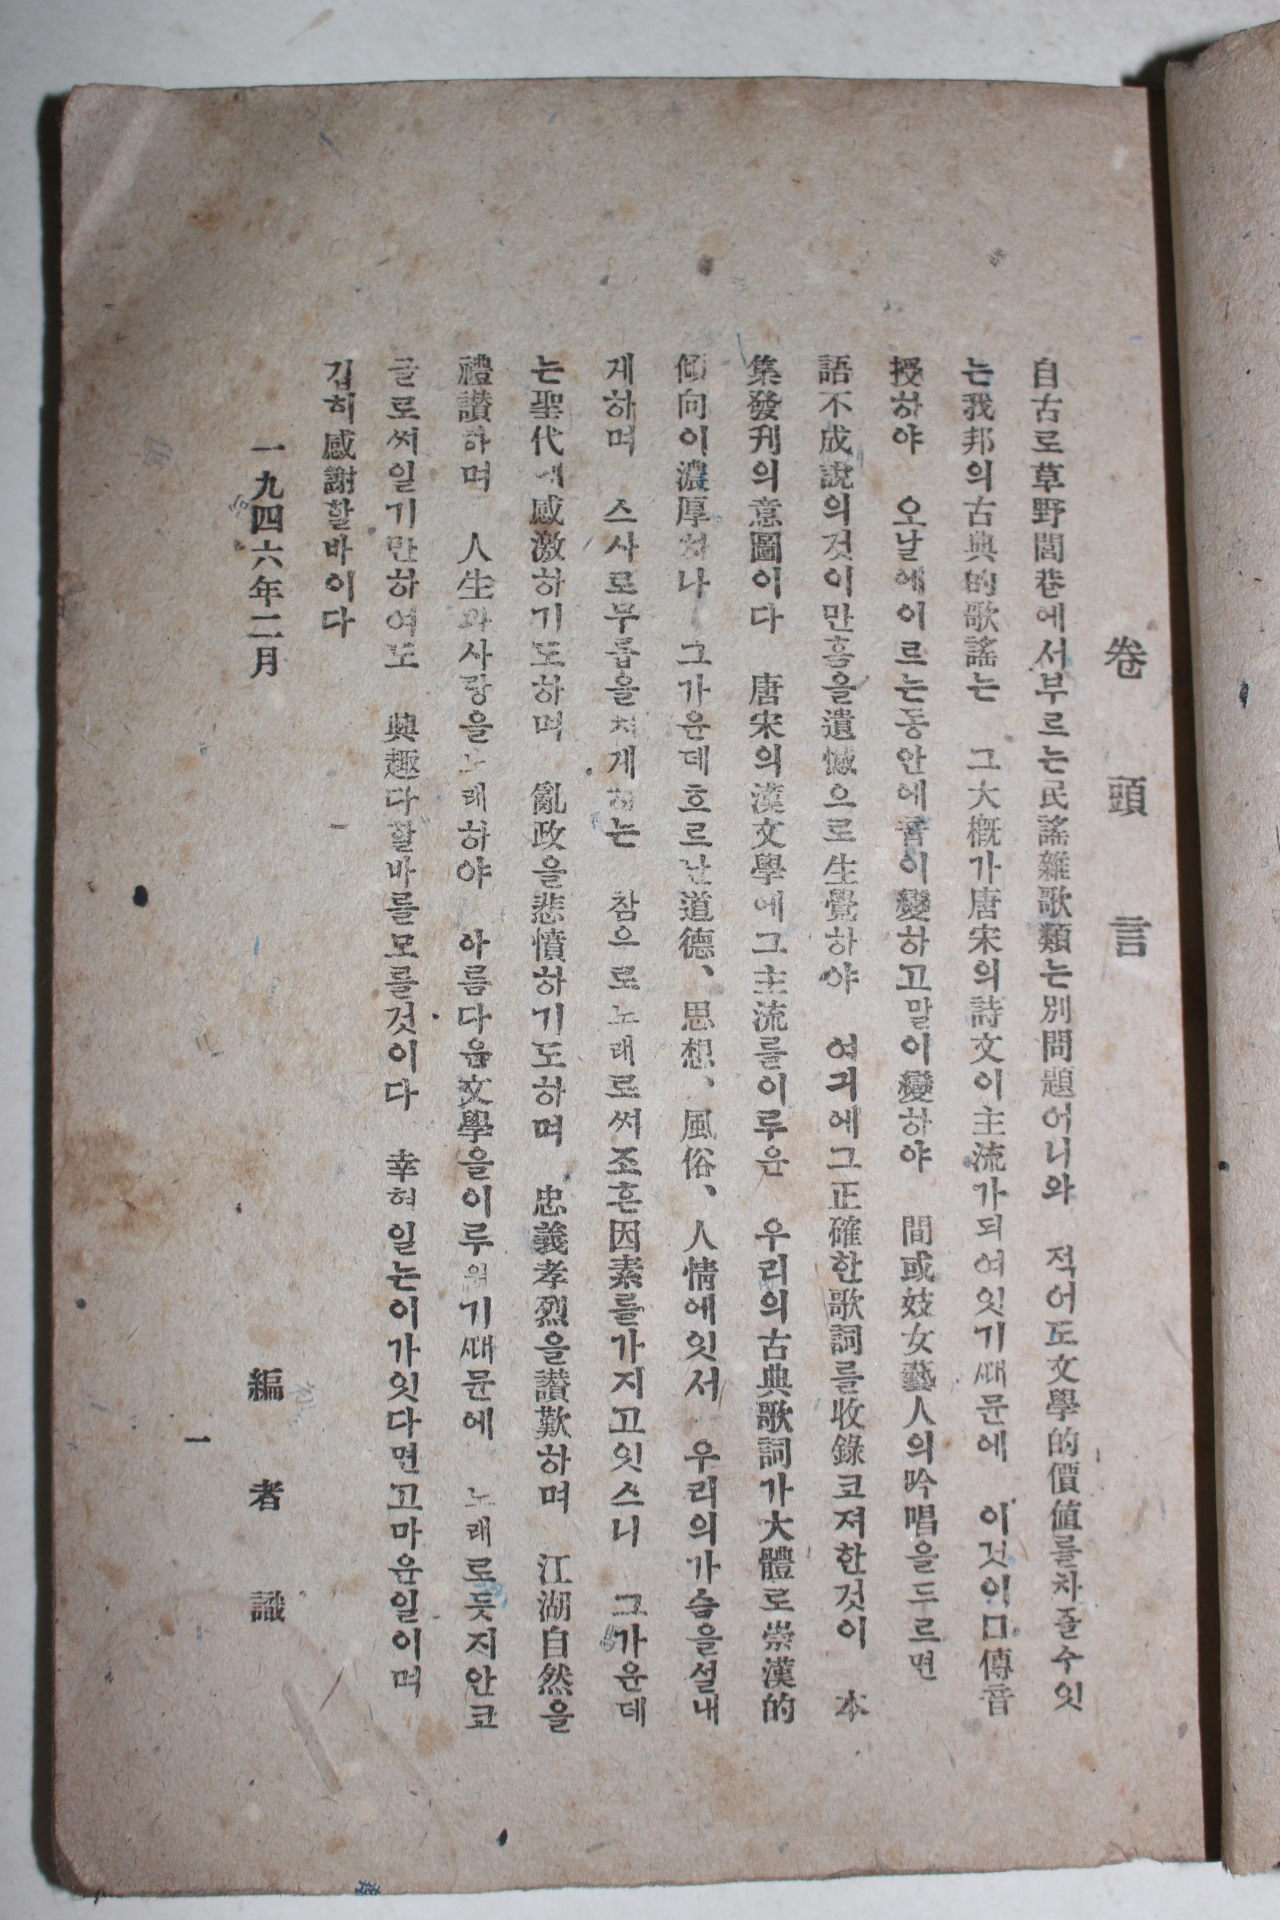 卷頭言
自古로草野閭巷에서부르는民謠雜歌類는別問題어니와 적어도文學的價値를차즐수잇
는我邦의古典的歌謠는 그大槪가唐宋의詩文이主流가되여잇기ᄯᅢ문에 이것이口傳音
授하야 오날에이르는동안에音이變하고말이變하야 間或妓女藝人의吟唱을드르면
語不成說의것이만흠을遺憾으로生覺하야 여긔에그正確한歌詞를收錄코져한것이 本
集發刊의意圖이다 唐宋의漢文學에그主流를이루운 우리의古典歌詞가大體로崇漢的
傾向이濃厚하나 그가운데흐르난道德、思想、風俗、人情에잇서 우리의가슴을설내
게하며 스사로무릅을치게하는 참으로노래로써조흔因素를가지고잇스니 그가운데
는聖代에感激하기도하며 亂政을悲憤하기도하며 忠義孝烈을讃歎하며 江湖自然을
禮讃하며 人生과사랑을노래하야 아름다음文學을이루웟기ᄯᅢ문에 노래로듯지안코
글로써일기만하여도 興趣다할바를모를것이다 幸혀일는이가잇다면고마운일이며
깁히感謝할바이다
一九四六年二月
編者識
一